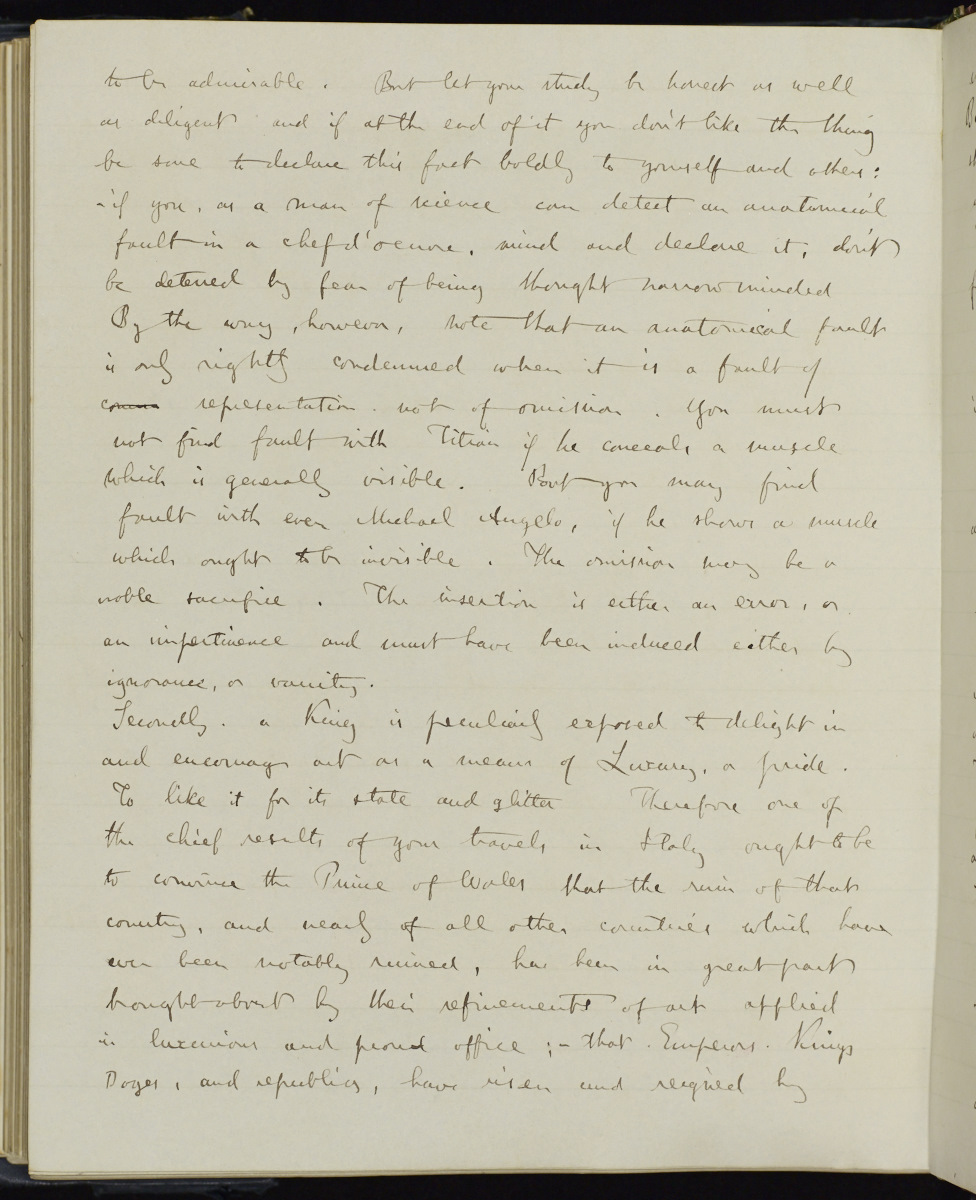 to be admirable. But let your study be honest as well
as diligent and if at the end of it you don't like the thing
be sure to declare this fact boldly to yourself and others:
- if you, as a man of science can detect an anatomical
fault in a chef d'oeuvre, mind and declare it; don't
be deterred by fear of being thought narrow minded
By the way, however, note that an anatomical fault
is only rightly condemned when it is a fault of
representation. not of omission. You must
not find fault with Titian if he conceals a muscle
which is generally visible. But you may find
fault with even Michael Angelo, if he shows a muscle
which ought to be invisible. The omission may be a
noble sacrifice. The insertion is either an error, or
an impertinence and must have been induced either by
ignorance, or vanity.
Secondly. a King is peculiarly exposed to delight in
and encourage art as a means of Luxury, or pride.
To like it for its state and glitter Therefore one of
the chief results of your travels in Italy ought to be
to convince the Prince of Wales that the ruin of that
country, and nearly of all other countries which have
ever been notably ruined, has been in great part
brought about by their refinements of art applied
in luxurious and proud office; - that. Emperors. Kings
Doges, and republics, have risen and reigned by